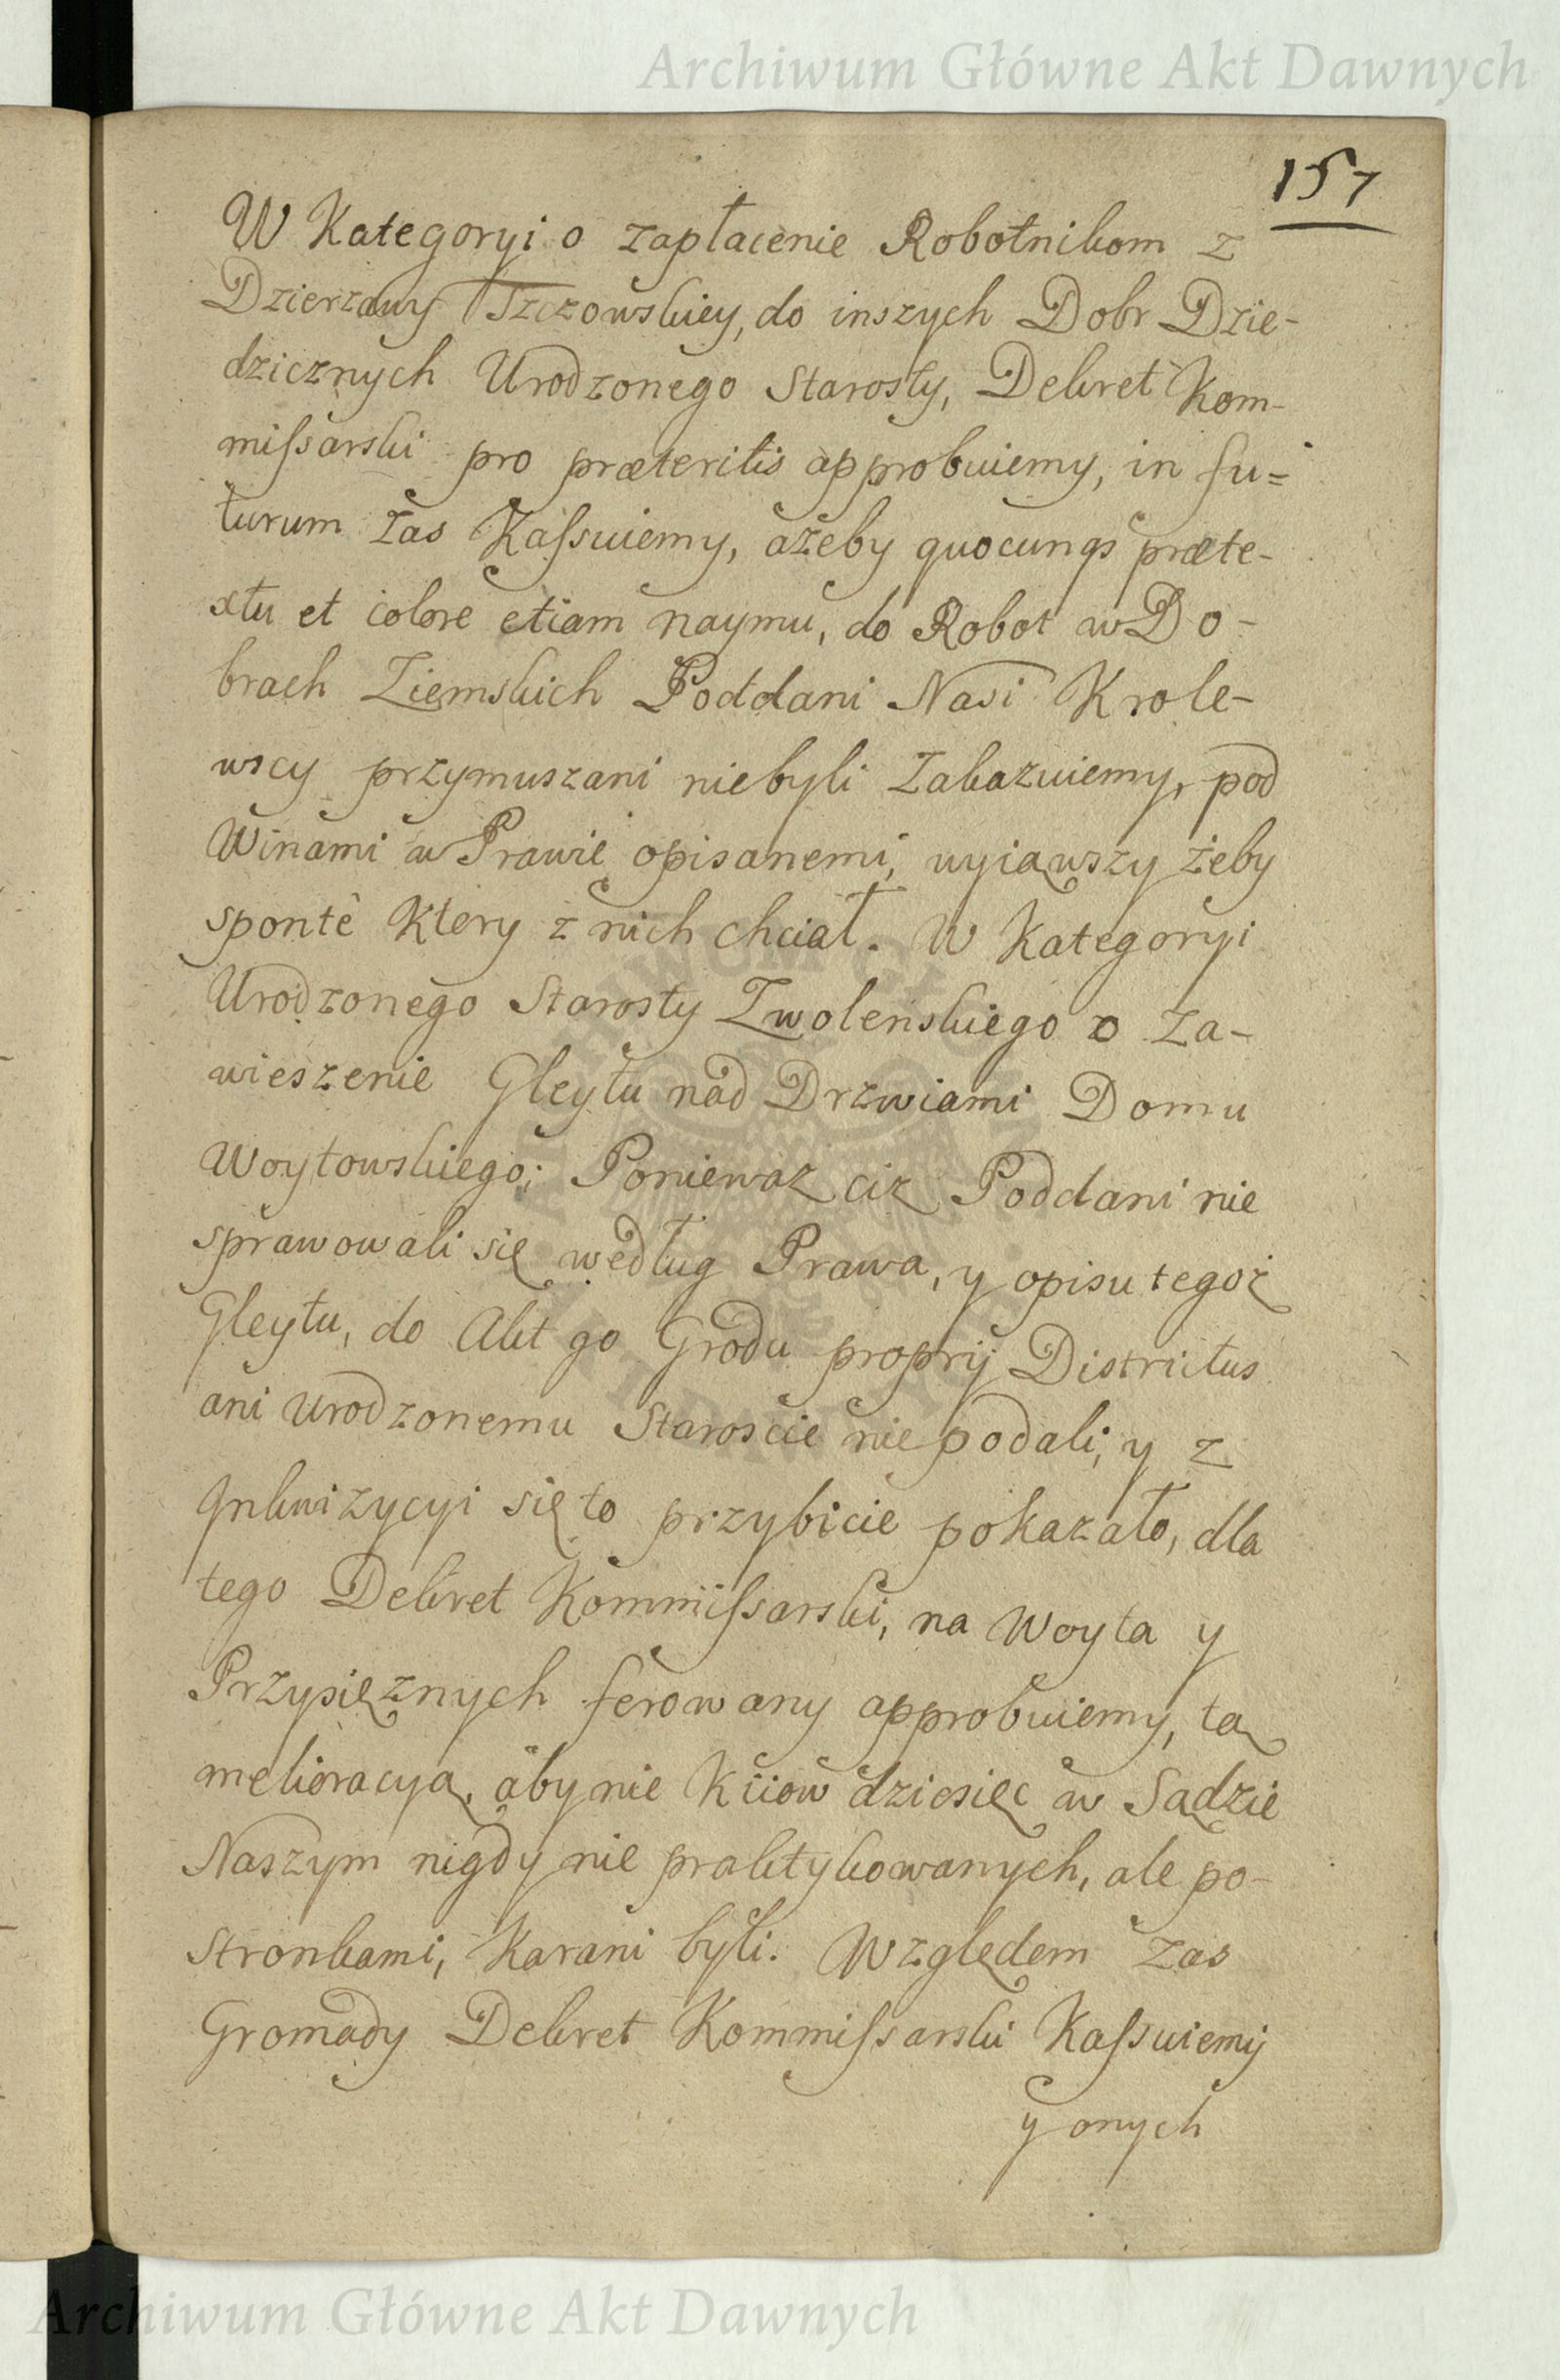 Archiwum Główne Akt Dawnych
157
W Kategoryi o zapłacenie Robotnikom z
Dzierzawy Tszczowskiey, do inszych Dobr Dzie-
dzicznych Urodzonego Starosty, Dekret Kom-
missarski pro præteritis approbuiemy, in fu=
turum zas Kassuiemy, ażeby quocunqs præte-
xtu et colore etiam naymu, do Robot w Do-
brach Ziemskich Poddani Nasi Krole-
wscy przymuszani niebyli zakazuiemy, pod
Winami w Prawie opisanemi, wyiąwszy żeby
spontè Ktery z nich chciał. W Kategoryi
Urodzonego Starosty Zwolenskiego o Za-
wieszenie Gleytu nad Drzwiami Domu
Woytowskiego; Poniewaz ciz Poddani nie
sprawowali się według Prawa, y opisu tegoż
Gleytu, do Akt go Grodu proprij Districtus
ani Urodzonemu Staroscie nie podali, y z
Inkwizycyi się to przybicie pokazało, dla
tego Dekret Kommissarski, na Woyta y
Przysięznych ferowany approbuiemy, tą
melioracyą, aby nie Kiiow dziesięc w Sądzie
Naszym nigdy nie praktykowanych, ale po-
stronkami, Karani byli. Względem zas
Gromady Dekret Kommissarski Kassuiemy
y onych
Archiwum Główne Akt Dawnych